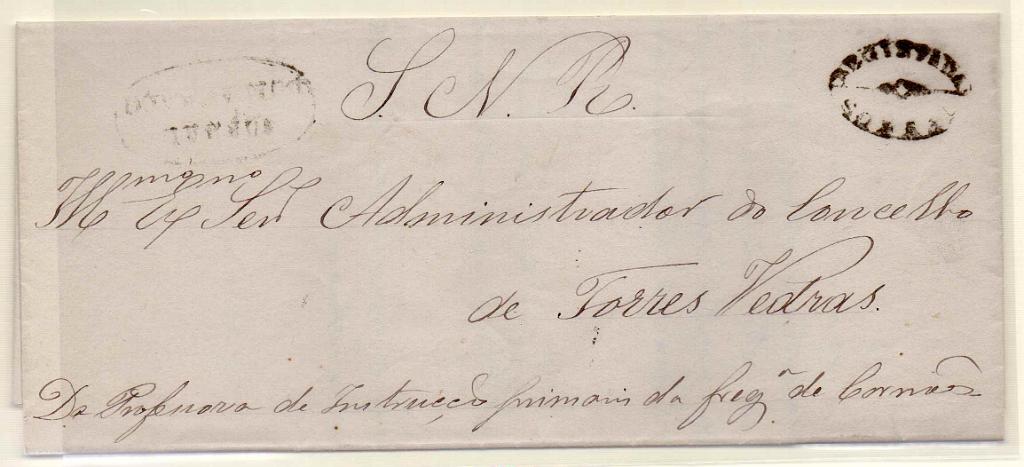 S. N. R.
REGISTADA
M.mo Ex.mo Senr Administrador do Concelho
de Torres Vedras.
Da Professora de Instrucção primaria da freg.a de